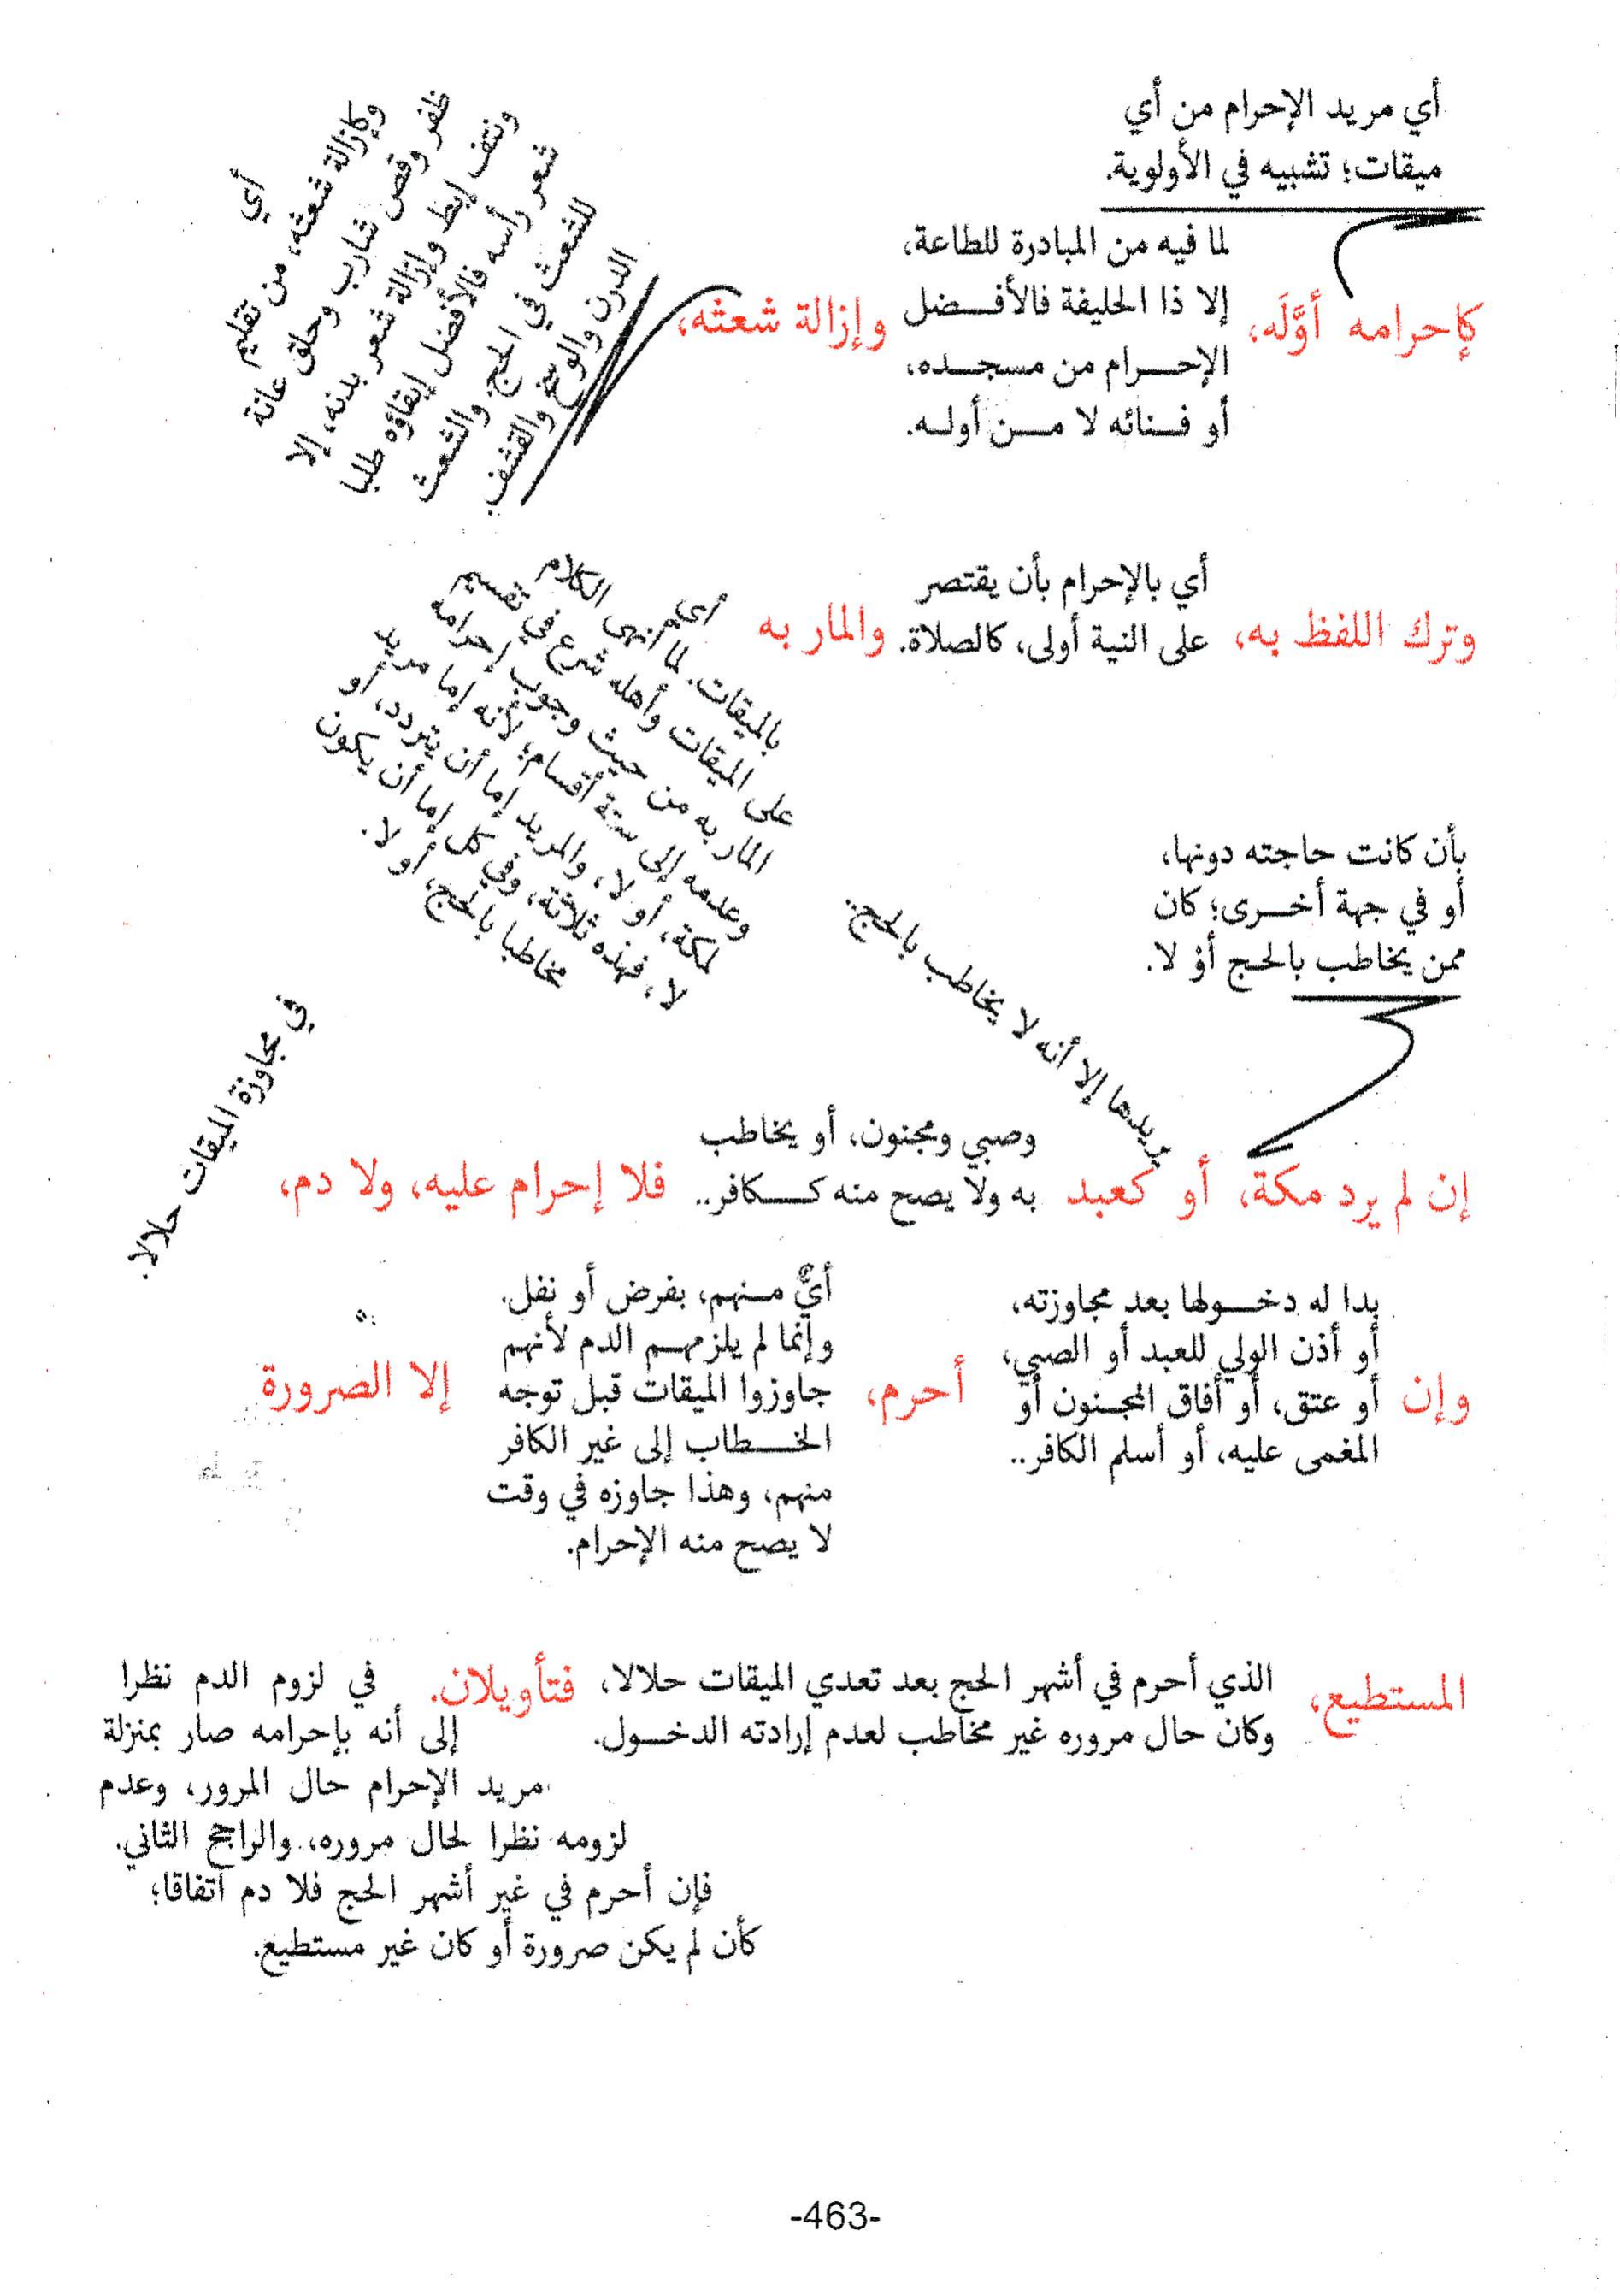 أي مريد الإحرام من أي
ميقات؛ تشبيه في الأولوية.
كإحرامه أوَّلَه،
لما فيه من المبادرة للطاعة،
إلا ذا الحليفة فالأفضل
الإحرام من مسجده،
أو فنائه لا من أوله.
وإزالة شعثه،
أي
وكإزالة شعثه، من تقليم
ظفر وقص شارب وحلق عانة
ونتف إبط وإزالة شعر بدنه، إلا
شعر رأسه فالأفضل إبقاؤه طلبا
للشعث في الحج. والشعث
الدرن والوسخ والقشف.
وترك اللفظ به،
أي بالإحرام بأن يقتصر
على النية أولى، كالصلاة.
والمار به
أي
بالميقات. لما أنهى الكلام
على الميقات وأهله شرع في تقسيم
المار به من حيث وجوب إحرامه
وعدمه إلى ستة أقسام؛ لأنه إما مريد
لمكة، أو لا، والمريد إما أن يتردد، أو
لا، فهذه ثلاثة، وفي كل إما أن يكون
مخاطبا بالحج، أو لا.
بأن كانت حاجته دونها،
أو في جهة أخرى؛ كان
ممن يخاطب بالحج أوْ لا.
إن لم يرد مكة،
أو كعبد
يريدها إلا أنه لا يخاطب بالحج..
وصبي ومجنون، أو يخاطب
به ولا يصح منه ككافر..
فلا إحرام عليه، ولا دم،
في مجاوزة الميقات حلالا.
وإن
بدا له دخولها بعد مجاوزته،
أو أذن الولي للعبد أو الصبي،
أو عتق، أو أفاق المجنون أو
المغمى عليه، أو أسلم الكافر..
أحرم،
أيٌّ منهم، بفرض أو نفل.
وإنما لم يلزمهم الدم لأنهم
جاوزوا الميقات قبل توجه
الخطاب إلى غير الكافر
منهم، وهذا جاوزه في وقت
لا يصح منه الإحرام.
إلا الصرورة
المستطيع،
الذي أحرم في أشهر الحج بعد تعدي الميقات حلالا،
وكان حال مروره غير مخاطب لعدم إرادته الدخول.
فتأويلان.
في لزوم الدم نظرا
إلى أنه بإحرامه صار بمنزلة
مريد الإحرام حال المرور، وعدم
لزومه نظرا لحال مروره، والراجح الثاني.
فإن أحرم في غير أشهر الحج فلا دم اتفاقا؛
كأن لم يكن صرورة أو كان غير مستطيع.
-463-